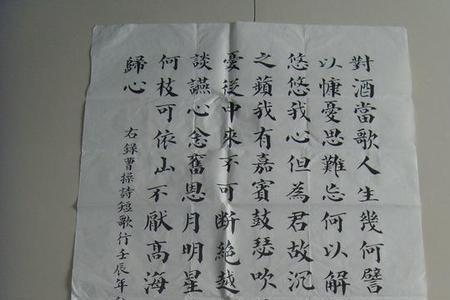 對酒當歌人生幾何譬
以慷憂思難忘何以解
悠悠我心但為君故沉
之蘋我有嘉賓鼓瑟吹
憂從中來不可断絕越
談讌心念舊恩月明星
何枝可依山不厭高海
歸心
右錄曹操詩短歌行壬辰年